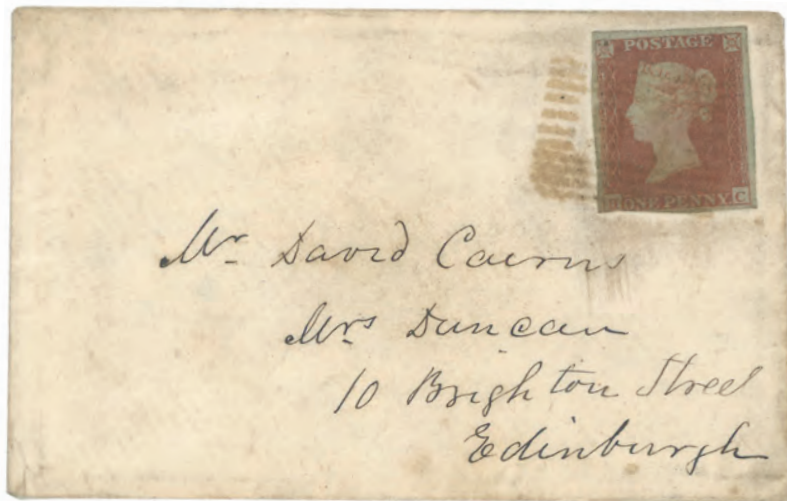 POSTAGE
ONE PENNY
C
Mr David Cairns
Mrs Duncan
10 Brighton Street
Edinburgh